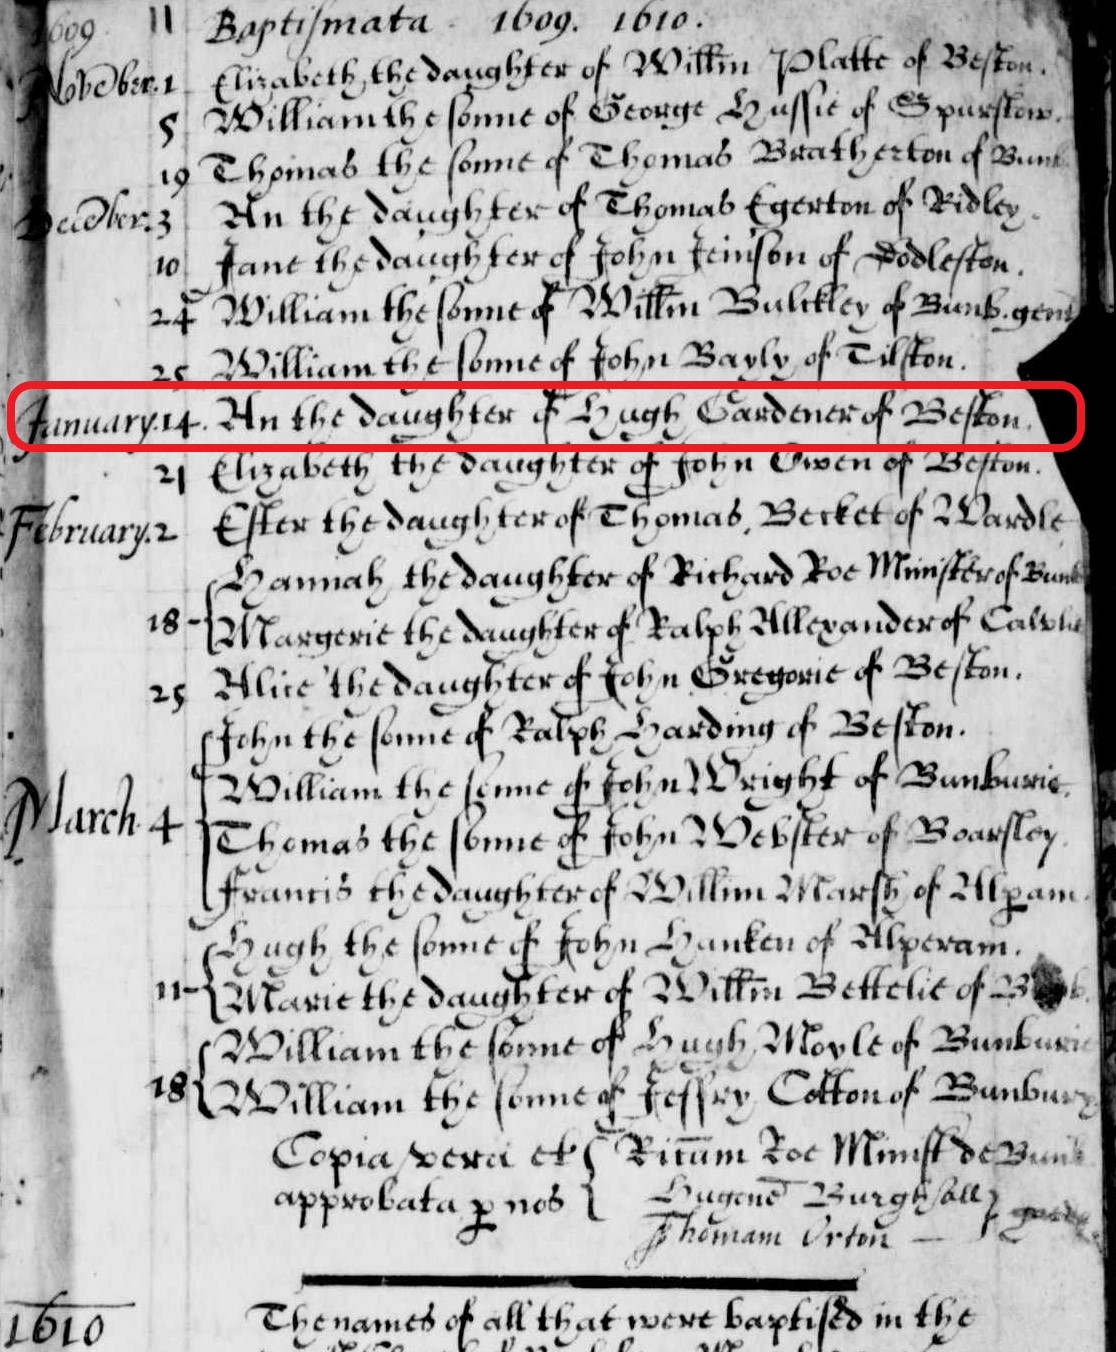 1609 11 Baptismata 1609. 1610.
November. 1 Elizabeth the daughter of Willm Platte of Beston.
5 William the sonne of George Hussie of Spurstow.
19 Thomas the sonne of Thomas Bratherton of Bunb
December. 3 An the daughter of Thomas Egerton of Ridley.
10 Jane the daughter of John of Dodleston.
24 William the sonne of Willm Bulckley of Bunb. gent
25 William the sonne of John Bayly of Tilston.
January. 14. An the daughter of Hugh Gardener of Beston.
21 Elizabeth the daughter of John Owen of Beston.
February. 2 Ester the daughter of Thomas Becket of Wardle
Hannah the daughter of Richard Roe Minister of Bunb
18 - Margerie the daughter of Ralph Allexander of
25 Alice the daughter of John Gregorie of Beston.
John the sonne of Ralph Harding of Beston.
William the sonne of John Wright of Bunburie.
March 4 Thomas the sonne of John Webster of Boarsley.
Francis the daughter of Willim Marsh of Alpam.
Hugh the sonne of John Hanken of Alperam.
11 - Marie the daughter of Willm Bettelie of
William the sonne of Hugh Moyle of Bunburie
18 William the sonne of Jeffry Cotton of Bunbury
Copia vera et Ricum Roe Minist de Bunb
approbata p nos Hugone Burghall
Thomam Orton
1610 The names of all that were baptised in the